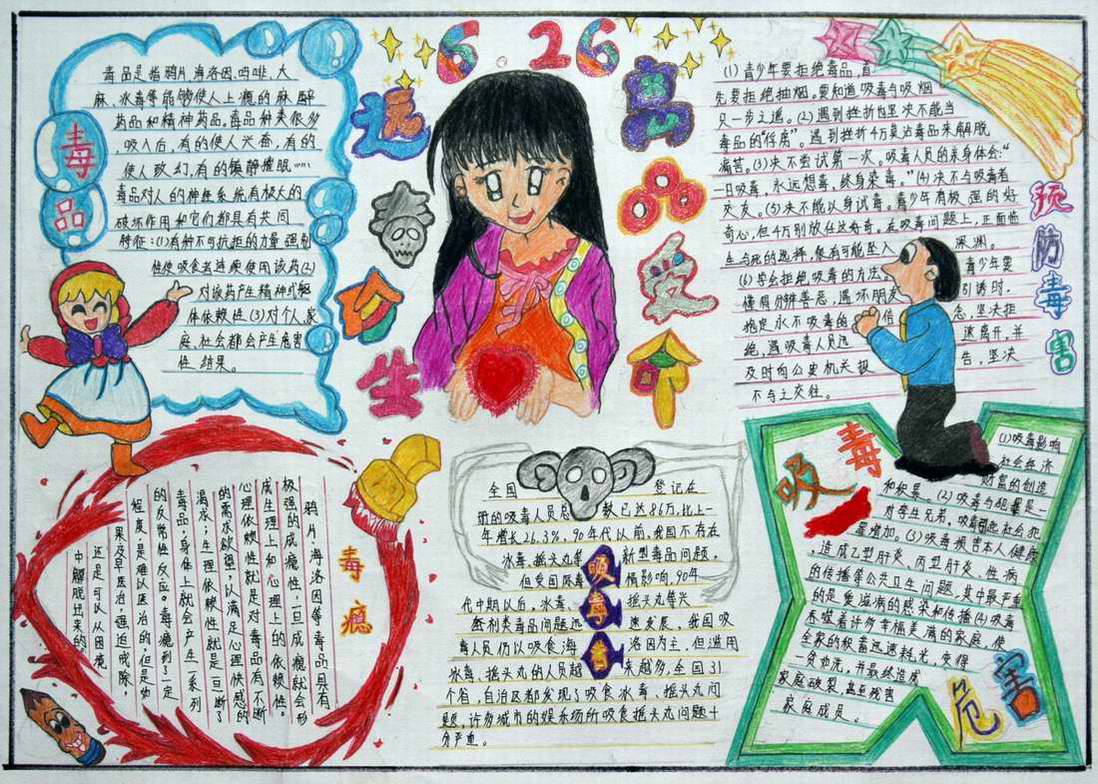 6.26
远离毒品
珍爱生命
毒品
毒品是指鸦片,海洛因,吗啡,大
麻,冰毒等能够使人上瘾的麻醉
药品和精神药品。毒品种类很多
吸入后,有的使人兴奋,有的
使人致幻,有的镇静催眠……
毒品对人的神经系统有极大的
破坏作用和它们都具有共同
特征:(1)有种不可抗拒的力量强制
性使吸食者连续使用该药(2)
对该药产生精神或躯
体依赖性(3)对个人,家
庭,社会都会产生危害
性结果。
预防毒害
(1)青少年要拒绝毒品,首
先要拒绝抽烟。要知道吸毒与吸烟
只一步之遥。(2)遇到挫折也坚决不能当
毒品的“俘虏”。遇到挫折千万莫沾毒品来解脱
痛苦。(3)决不尝试第一次。吸毒人员的亲身体会:“
一日吸毒,永远想毒,终身染毒。”(4)决不与吸毒者
交友。(5)决不能以身试毒。青少年有极强的好
奇心,但千万别放任这好奇。在吸毒问题上,正面临
生与死的选择,很有可能坠入深渊。
(6)学会拒绝吸毒的方法 青少年要
懂得分辨善恶,遇坏朋友引诱时,
抱定永不吸毒的信念,坚决拒
绝,遇吸毒人员迅速离开,并
及时向公安机关报告,坚决
不与之交往。
毒瘾
鸦片,海洛因等毒品具有
极强的成瘾性,一旦成瘾就会形
成生理上和心理上的依赖性。
心理依赖性就是对毒品有不断
的需求欲望,以满足心理快感的
渴求;生理依赖性就是一旦断了
毒品,身体上就会产生一系列
的反常性反应。毒瘾到了一定
程度,是难以医治的,但是如
果及早医治,强迫戒除,
还是可以从困境
中解脱出来的。
吸毒者
全国 登记在
册的吸毒人员总数已达86万,比上一
年增长26.3%,90年代以前,我国不存在
冰毒,摇头丸等新型毒品问题,
但受国际毒情影响,90年
代中期以后,冰毒、摇头丸等兴
奋剂类毒品问题迅速发展,我国吸
毒人员仍以吸食海洛因为主,但滥用
冰毒,摇头丸的人员越来越多,全国31
个省,自治区都发现了吸食冰毒、摇头丸问
题,许多城市的娱乐场所吸食摇头丸问题十
分严重。
吸毒危害
(1)吸毒影响
社会经济
财富的创造
和积累。(2)吸毒与犯罪是一
对孪生兄弟,吸毒引起社会犯
罪增加。(3)吸毒损害本人健康
,造成乙型肝炎、丙卫肝炎、性病
的传播等公共卫生问题,其中最严重
的是爱滋病的感染和传播(4)吸毒
吞噬着许多幸福美满的家庭,使
全家的积蓄迅速耗光,变得
一贫如洗,并最终造成
家庭破裂,甚至残害
家庭成员。